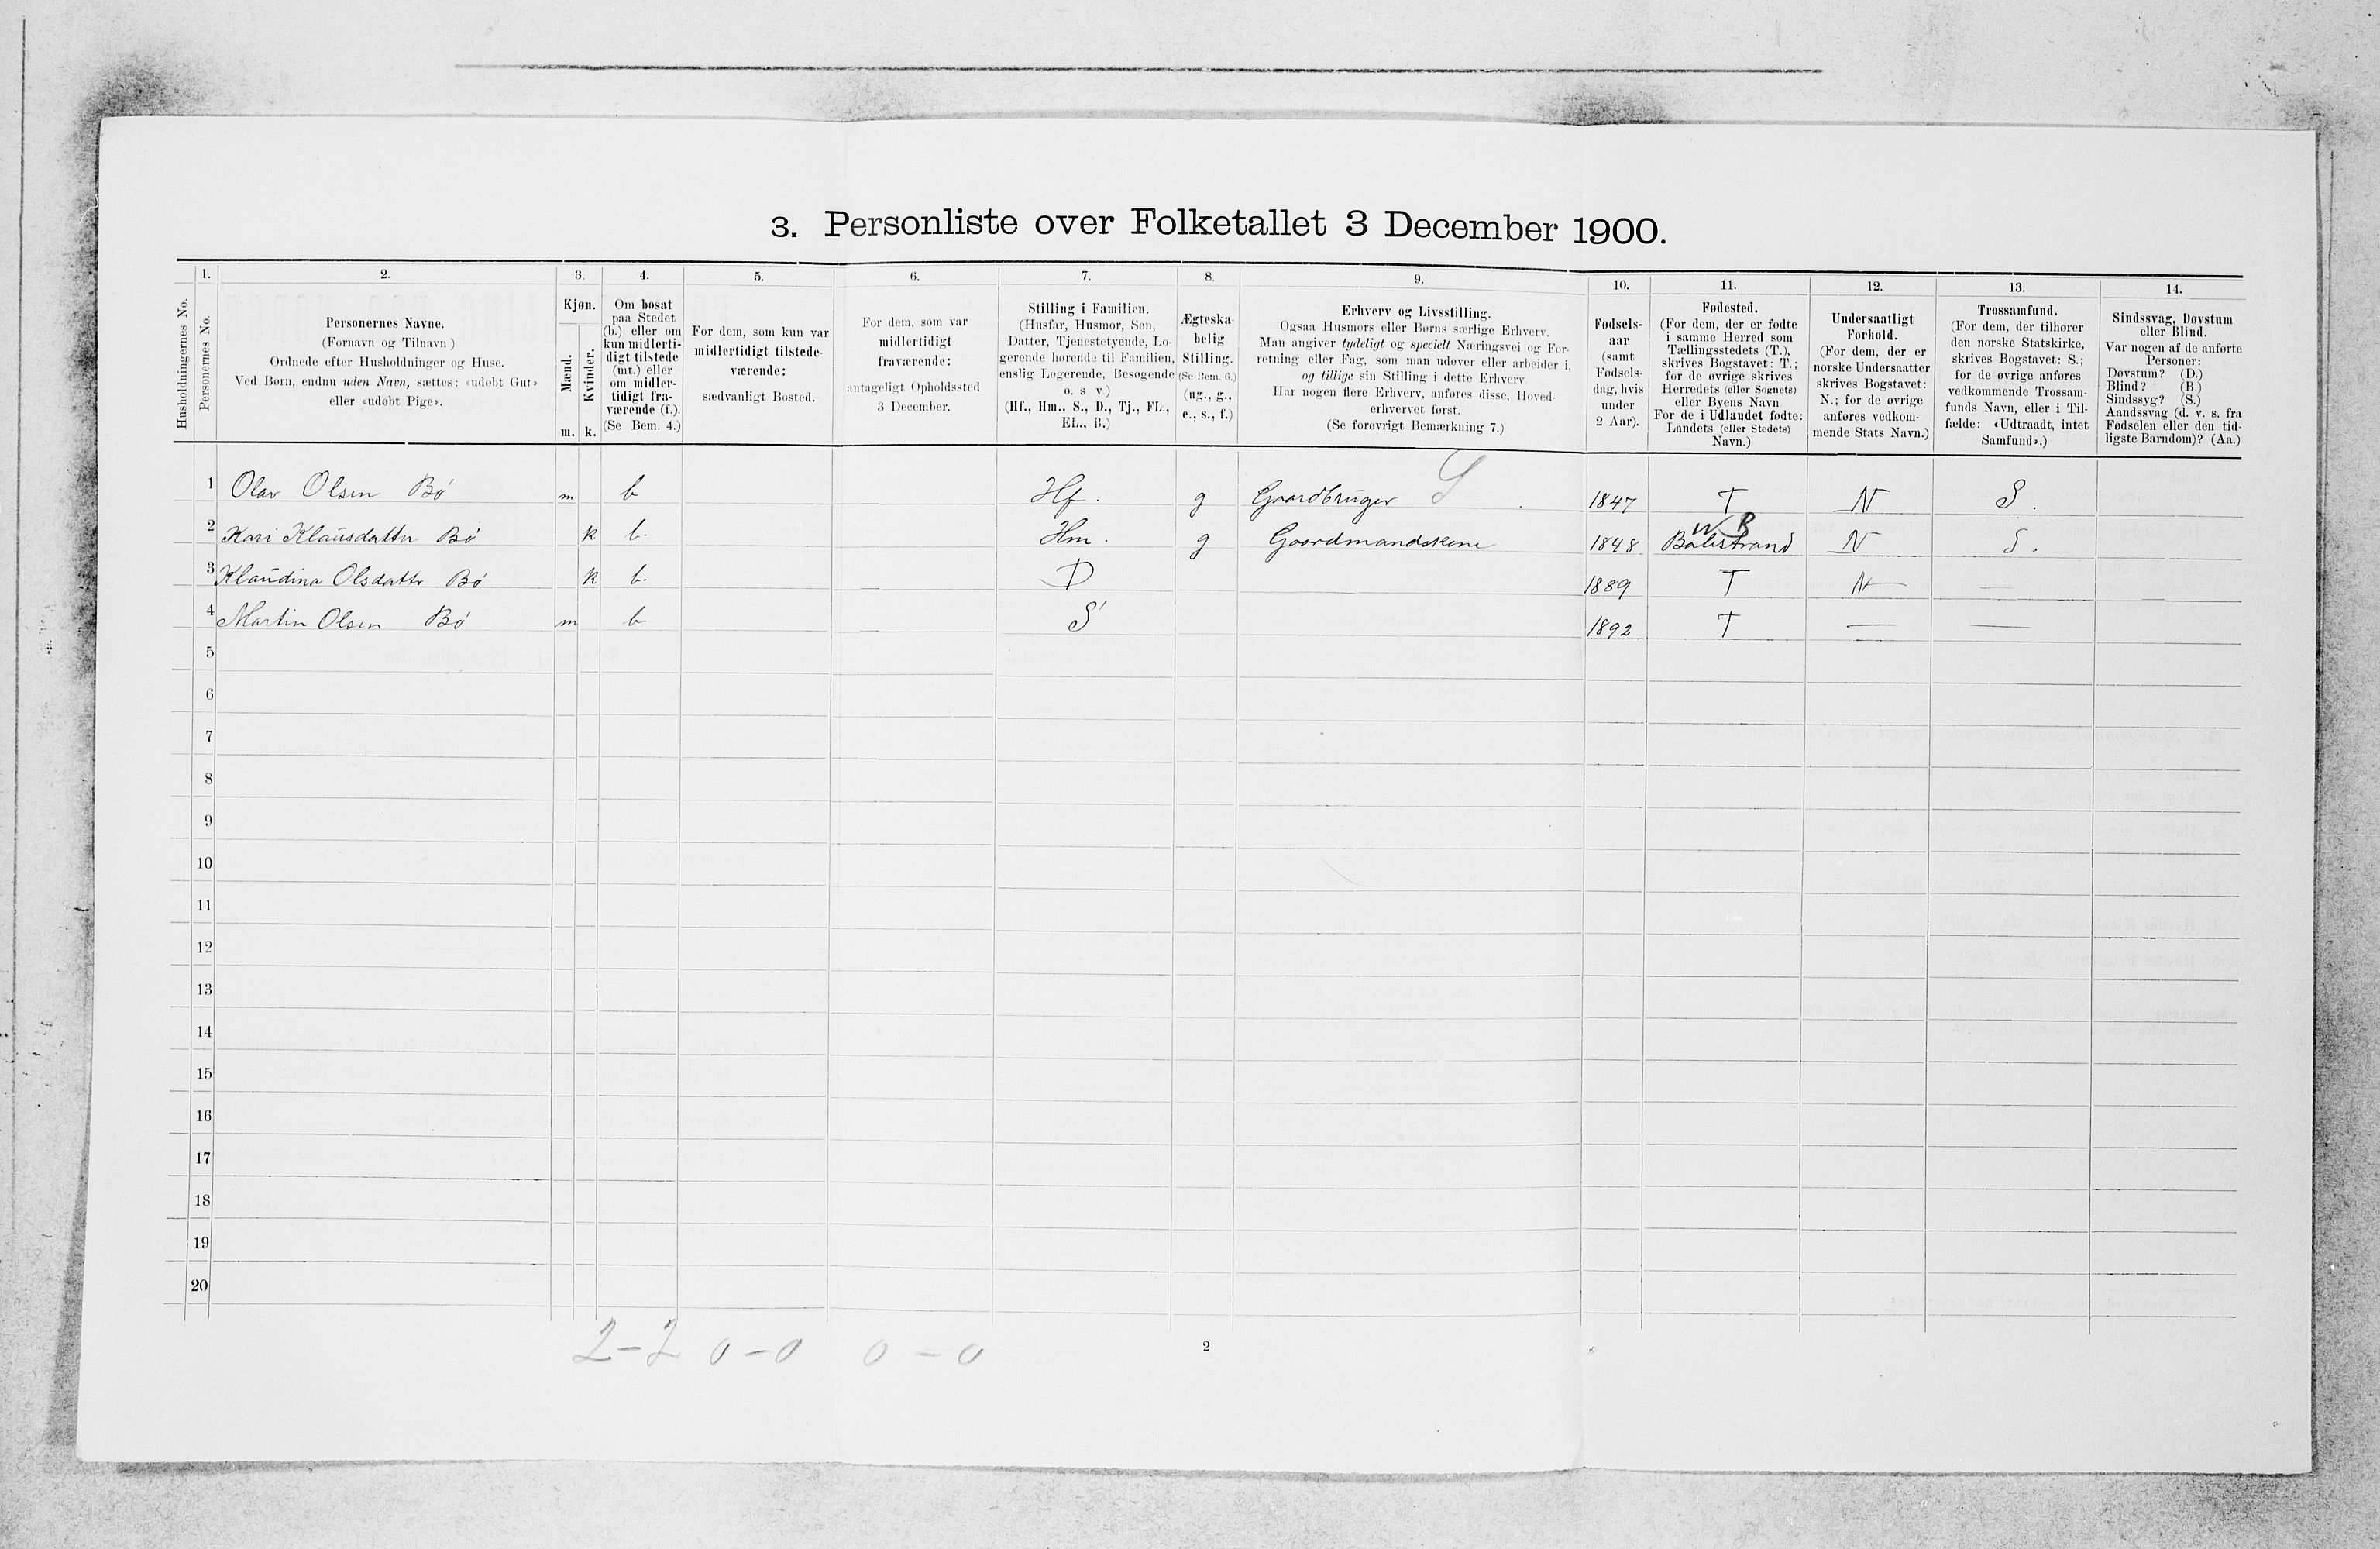 3. Personliste over Folketallet 3 December 1900.
1. 2. 3. 4. 5. 6. 7. 8. 9. 10. 11. 12. 13. 14.
Husholdningernes No.
Personernes No.
Personernes Navne.
(Fornavn og Tilnavn)
Ordnede efter Husholdninger og Huse.
Ved Børn, endnu uden Navn, sættes: «udøbt Gut»
eller «udøbt Pige».
Kjøn.
Mænd.
Kvinder.
m. k.
Om bosat
paa Stedet
(b.) eller om
kun midlerti-
digt tilstede
(mt.) eller
om midler-
tidigt fra-
værende (f.).
(Se Bem. 4.)
For dem, som kun var
midlertidigt tilstede-
værende:
sædvanligt Bosted.
For dem, som var
midlertidigt
fraværende:
antageligt Opholdssted
3 December.
Stilling i Familien.
(Husfar, Husmor, Søn,
Datter, Tjenestetyende, Lo-
gerende hørende til Familien,
enslig Logerende, Besøgende
o. s v.)
(Hf., Hm., S., D., Tj., FL.,
EL., B.)
Ægteska-
belig
Stilling.
(Se Bem. 6.)
(ug., g.,
e., s., f.)
Erhverv og Livsstilling.
Ogsaa Husmors eller Børns særlige Erhverv.
Man angiver tydeligt og specielt Næringsvei og For-
retning eller Fag, som man udøver eller arbeider i,
og tillige sin Stilling i dette Erhverv.
Har nogen flere Erhverv, anføres disse, Hoved-
erhvervet først.
(Se forøvrigt Bemærkning 7.)
Fødsels-
aar
(samt
Fødsels-
dag, hvis
under
2 Aar).
Fødested.
(For dem, der er fødte
i samme Herred som
Tællingsstedets (T.),
skrives Bogstavet: T.;
for de øvrige skrives
Herredets (eller Sognets)
eller Byens Navn
For de i Udlandet fødte:
Landets (eller Stedets)
Navn.)
Undersaatligt
Forhold.
(For dem, der er
norske Undersaatter
skrives Bogstavet:
N.; for de øvrige
anføres vedkom-
mende Stats Navn.)
Trossamfund.
(For dem, der tilhører
den norske Statskirke,
skrives Bogstavet: S.;
for de øvrige anføres
vedkommende Trossam-
funds Navn, eller i Til-
fælde: «Udtraadt, intet
Samfund».)
Sindssvag, Døvstum
eller Blind.
Var nogen af de anførte
Personer:
Døvstum? (D.)
Blind? (B.)
Sindssyg? (S.)
Aandssvag (d. v. s. fra
Fødselen eller den tid-
ligste Barndom)? (Aa.)
1 Olav Olsen Bø m b Hf. g Gaardbruger S 1847 T N S.
2 Kari Klausdatter Bø k b. Hm. g Gaardmandskone 1848 Balestrand N S.
3 Klaudina Olsdattr Bø k b. D 1889 T N —
4 Martin Olsen Bø m b S 1892 T — —
5
6
7
8
9
10
11
12
13
14
15
16
17
18
19
20
2-2 0-0 0-0
2